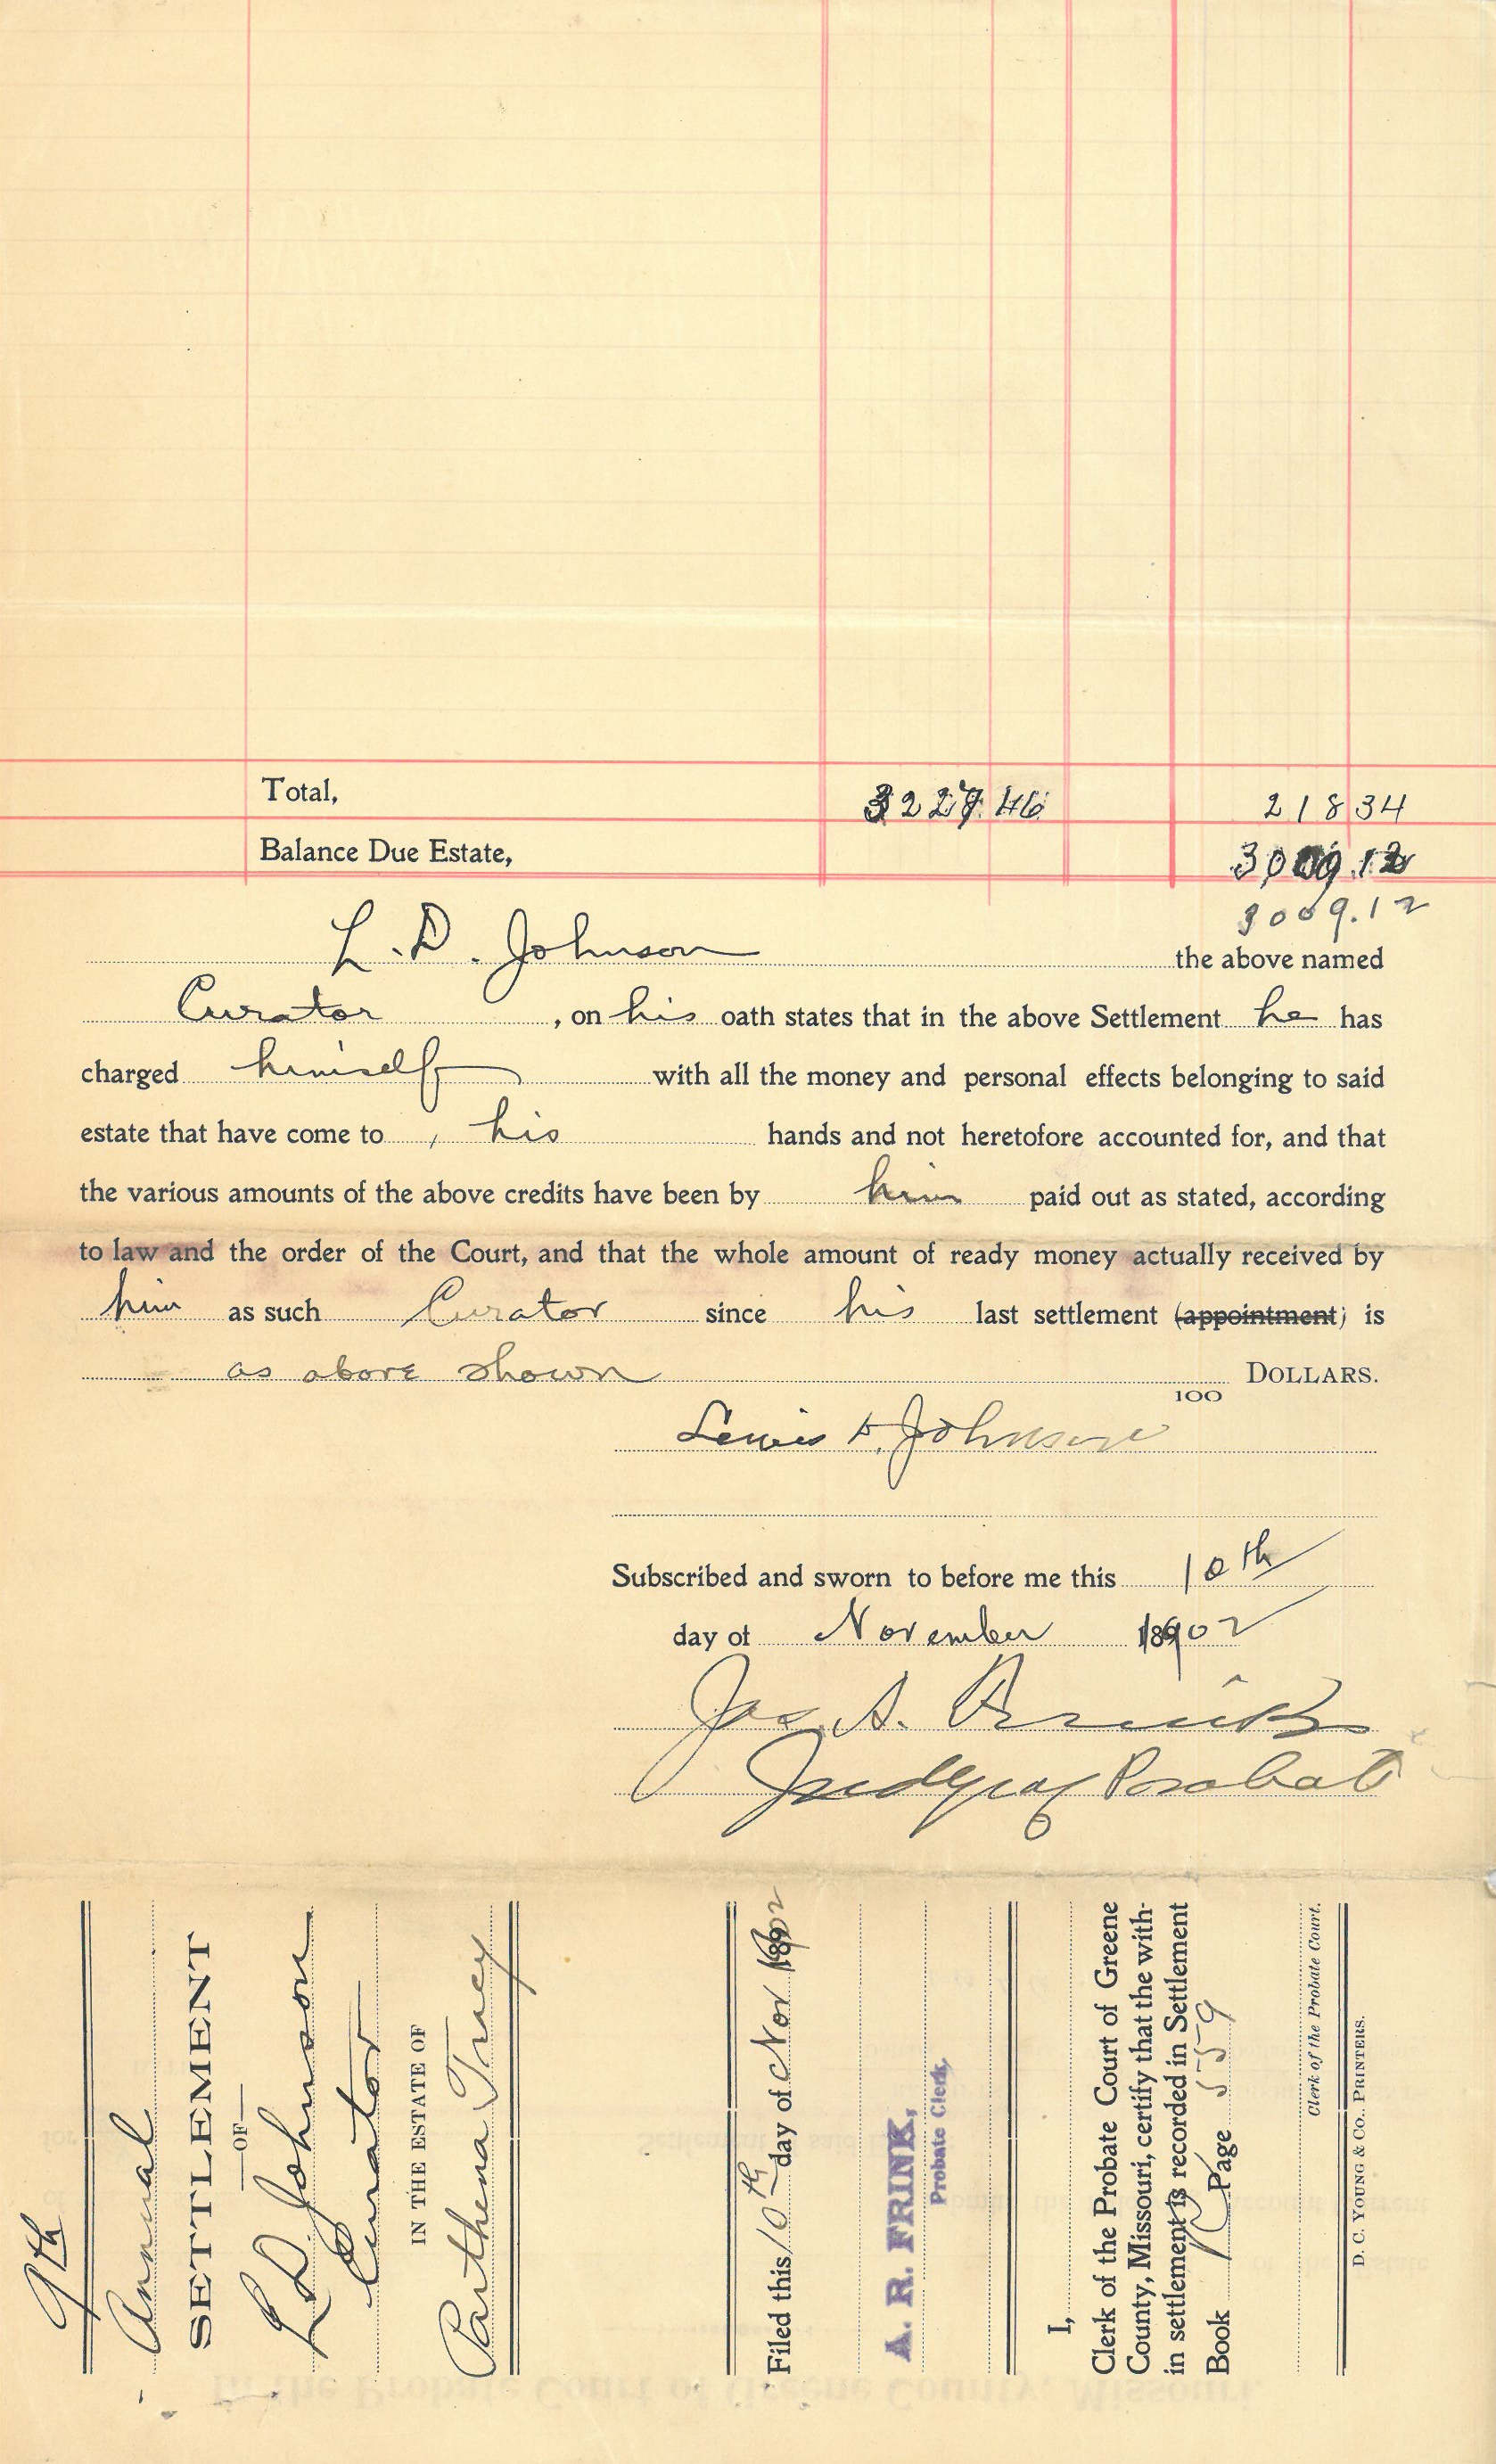 Total, 3227.46 218 34
Balance Due Estate, 3009.12
3009.12
L. D. Johnson the above named
Curator, on his oath states that in the above Settlement he has
charged himself with all the money and personal effects belonging to said
estate that have come to his hands and not heretofore accounted for, and that
the various amounts of the above credits have been by him paid out as stated, according
to law and the order of the Court, and that the whole amount of ready money actually received by
him as such Curator since his last settlement (appointment) is
as above shown DOLLARS.
100
Lewis D. Johnson
Subscribed and sworn to before me this 10th
day of November 1902
Jas. A. Frink
Judge of Probate
9th
Annual
SETTLEMENT
—OF—
L D Johnson
Curator
IN THE ESTATE OF
Parthena Trucy
Filed this 10th day of Nov 1902
A. R. FRINK,
Probate Clerk,
I,
Clerk of the Probate Court of Greene
County, Missouri, certify that the with-
in settlement is recorded in Settlement
Book Page 559
Clerk of the Probate Court.
D. C. YOUNG & CO. PRINTERS.